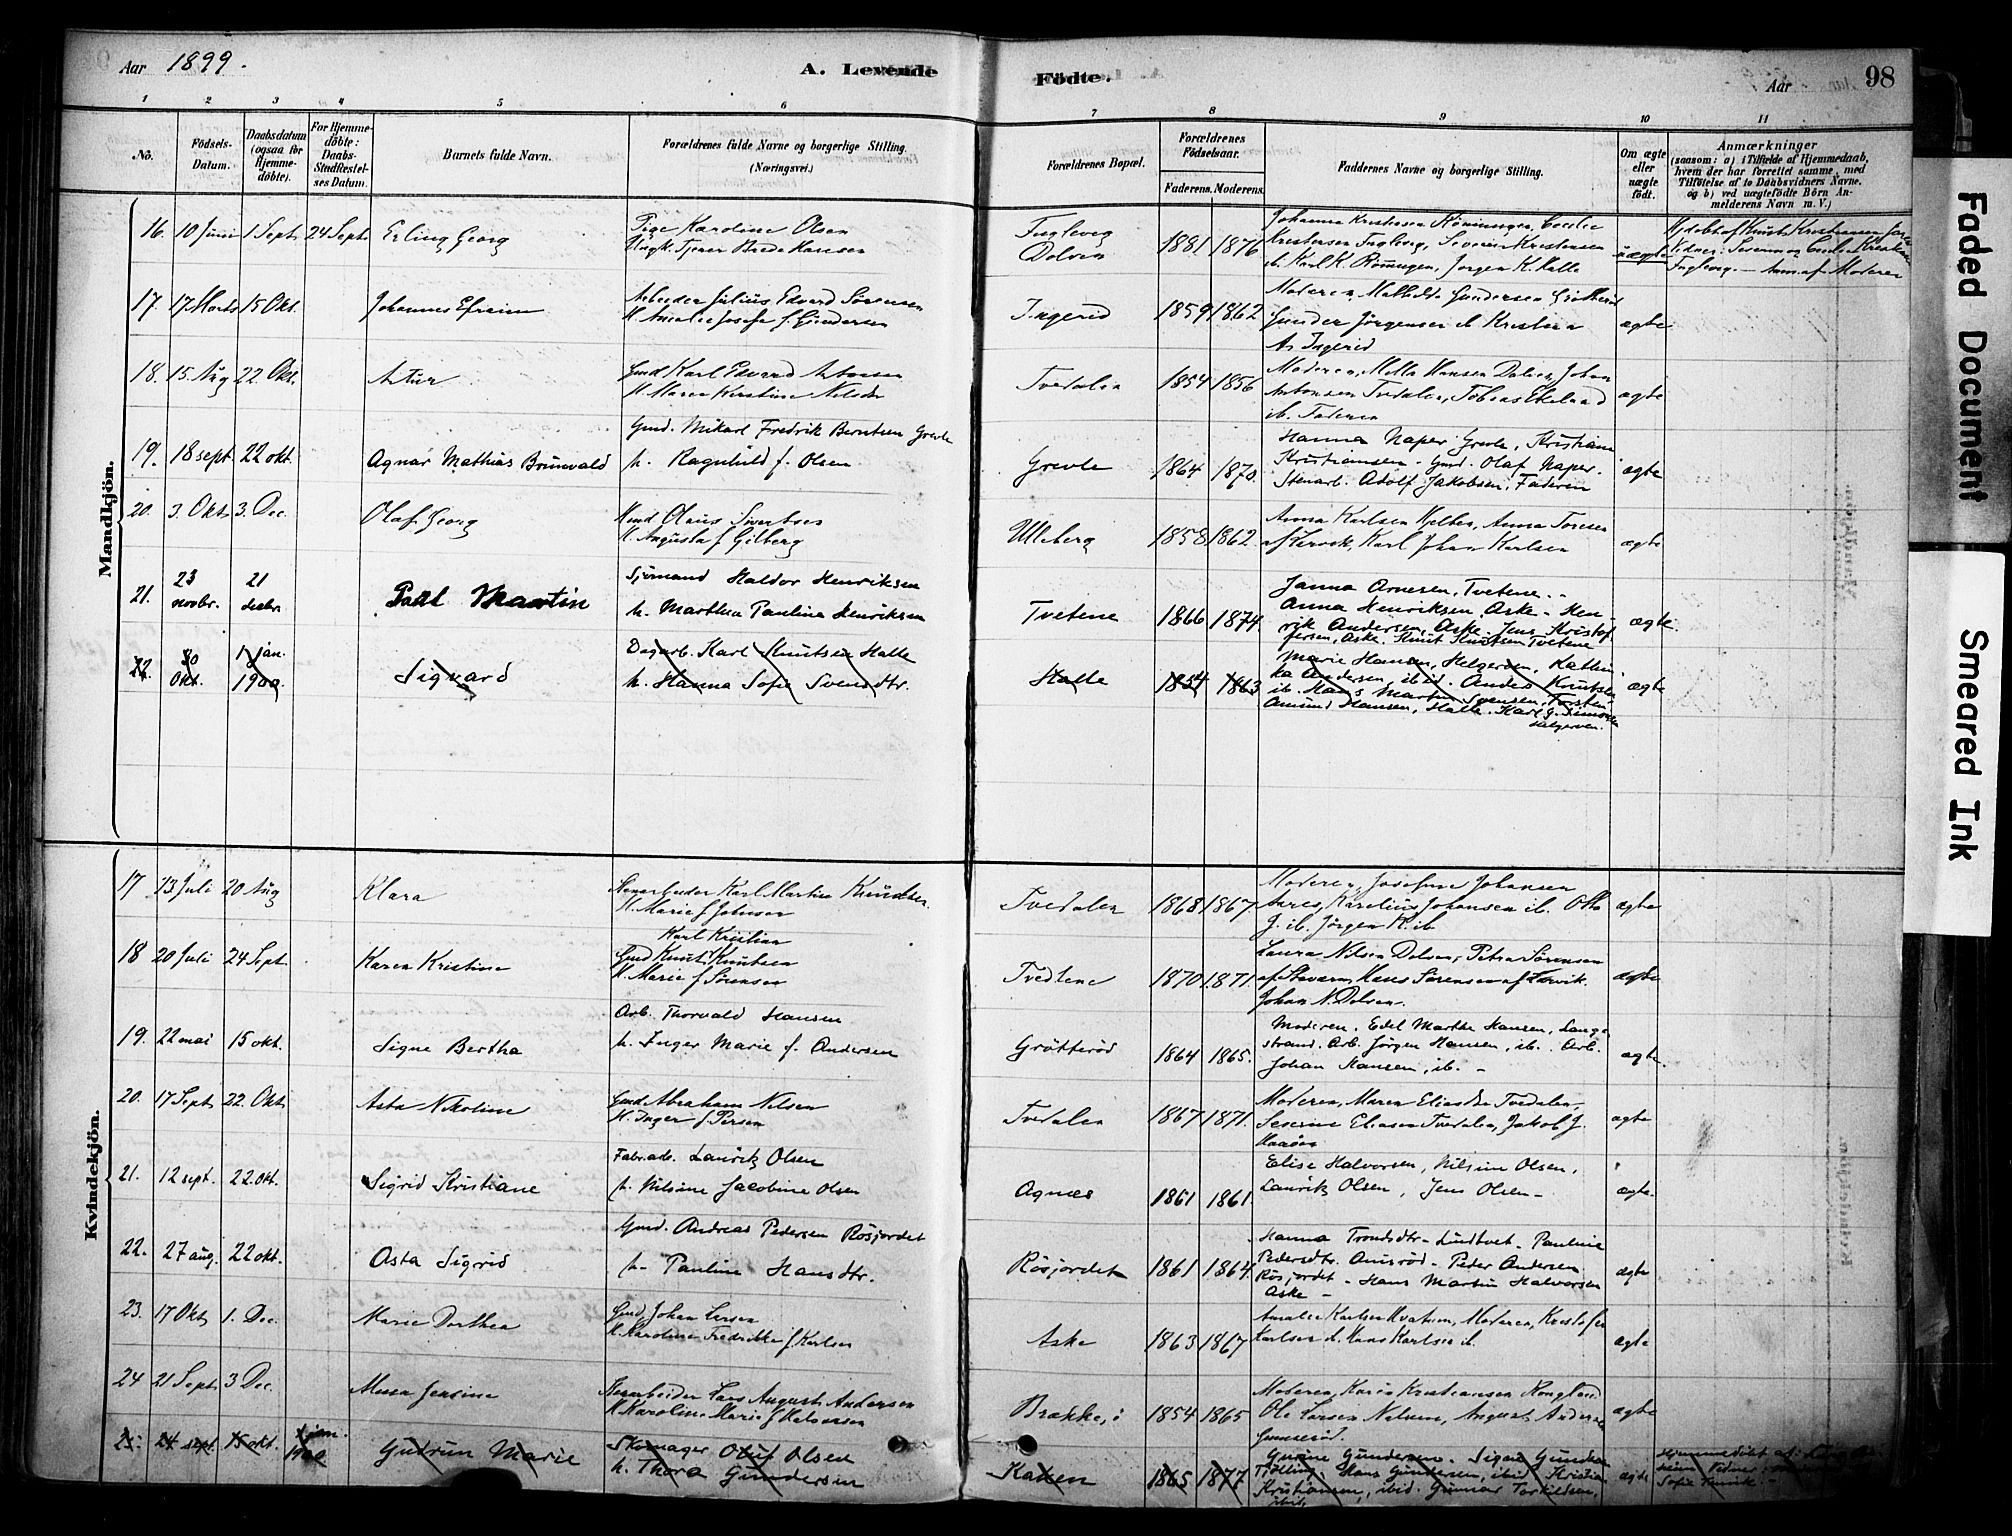 Aar 1899.
A. Levende Födte.
Aar 98
1 2 3 4 5 6 7 8 9 10 11
No.
Födsels-Datum.
Daabsdatum (ogsaa for Hjemme-döbte).
For Hjemme-döbte: Daabs-Stadfæstel-ses Datum.
Barnets fulde Navn.
Forældrenes fulde Navne og borgerlige Stilling.
(Næringsvei.)
Forældrenes Bopæl.
Forældrenes Födselsaar.
Faderens. Moderens.
Faddernes Navne og borgerlige Stilling.
Om ægte eller uægte födt.
Anmærkninger
(saasom: a) i Tilfælde af Hjemmedaab, hvem der har forrettet samme, med Tilföielse af to Daabsvidners Navne, og b) ved uægtefödte Börn Anmelderens Navn m. V.)
Mandkjön.
16. 10 Juni 1 Sept. 24 Sept. Erling Georg
Pige Karoline Olsen
Ungk. Tjener Hansen
Fuglevig
Dolven
1881 1876
Karl K. Jorgen K. Halle
uægte
Anm. af Moderen
17. 17 Marts 15 Okt. Johannes Efraim
Arbeider Julius Edvard Sörensen
H. Amalie Josefa f. Gundersen
Ingerid
1859 1862
Moderen, Mathilde Gundersen Grötteröd
Gunder Jörgensen ib Kristian
A. Ingerid
ægte
18. 15 Aug 22. Okt. Artur
Gmd Karl Edvard Antonsen
H. Maren Kirstine Nilsdtr
Tvedalen
1854 1856
Moderen, Hansen Johan
Antonsen Tvedalen, Tobias
ib. Faderen
ægte
19. 18 sept. 22 okt. Agnar Mathias Brunvald
Gmd. Mikael Fredrik Berntsen Grevle
h. Ragnhild f. Olsen
Grevle
1864 1870.
Hanna Naper Grevle, Kristiane
Kristiansen - Gmd. Olaf Naper.
Stenarb. Adolf Jakobsen, Faderen
ægte
20. 3. Okt. 3. Dec. Olaf Georg
Olaus Sivertsen
H. Augusta f Gilberg
Ulleberg
1858 1862.
Anna Karlsen Anna Toresen
Karl Johan Karlsen
ægte
21. 23 novbr. 21 decbr. Paul Martin
Sjömand Haldor Henriksen
h. Marthea Pauline Henriksen
Tvetene
1866 1874.
Janna Arnesen, Tvetene. -
Anna Henriksen, Aske - Hen
rik Andersen, Aske. Jens Kristof
fersen, Aske. Knut Knutsen Tvetene
ægte.
22. 30 Okt. 1 jan. 1900. Sigvard
Dagarb. Karl Knutsen Halle
h. Hanna Sofie Svensdtr.
Halle
1854 1863
Marie Hansen, Helgeroen. Kathin
ka Andersen, ibid. Anders Knutsen
ib. Hans Martin Svensen, Torsten
Amund Hansen, Halle. Karl G. Simonsen
Helgeroen.
ægte
Kvindekjön.
17 13 Juli 20 Aug Klara
Stenarbeider Karl Martin Knudsen
H. Marie f Johnsen
Tvedalen
1868 1867
Moderen, Josefine Johansen
Karelius Johansen ib. Otto
J. ib. Jörgen K. ib
ægte
18 20 Juli 24 Sept. Karen Kristine
Karl Kristian
Gmd Knut Knutsen
H. Marie f Sörensen
Tvedtene
1870 1871.
Laura Nilsen Dolven, Petra Sörensen
af Stavern, Hans Sörensen af Larvik.
Johan N. Dolven.
ægte
19. 22 mai 15 okt. Signe Bertha
Arb. Thorvald Hansen
h. Inger Marie f. Andersen
Grötteröd
1864 1865.
Moderen. Edel Marthe Hansen, Lange
strand. Arb. Jörgen Hansen, ib. Arb.
Johan Hansen, ib. -
ægte.
20. 17 Sept 22. Okt Asta Nikoline
Gmd Abraham Nilsen
H. Inger f Persen
Tvedalen
1867 1871.
Moderen, Maren Eliasdtr Tvedalen,
Severine Eliasen Tvedalen, Jakob J.
ægte
21. 12 sept. 22 okt. Sigrid Kristiane
Fabr.arb. Lauritz Olsen
h. Nilsine Jacobine Olsen
Agnæs
1861 1861.
Elise Halvorsen, Nilsine Olsen.
Lauritz Olsen, Jens Olsen -
ægte.
22. 27 aug. 22 okt. Asta Sigrid
Gmd. Andreas Pedersen Rösjordet
h. Pauline Hansdtr.
Rösjordet
1861 1864.
Hanna Trondsdtr - Lindtvet - Pauline
Pedersdtr. Anisröd - Peder Andersen
Rösjordet - Hans Martin Halvorsen
Aske -
ægte
23. 17 Okt 1. Dec. Marie Dorthea
Gmd Johan Larsen
H. Karoline Fredrikke f Karlsen
Aske
1863 1867
Amalie Karlsen Moderen, Kristofer
Karlsen ib. Hans Karlsen ib.
ægte
24 21 Sept. 3 Dec. Jensine
Stenarbeider Lars August Andersen
H. Karoline Marie f Halvorsen
Brække,
1854 1865
Moderen, Karen Kristiansen
Ole Larsen August Andersen
ægte
25. 24 sept. 15 okt. 1 jan. 1900 Gudrun Marie
Skomager Oluf Olsen
h. Thora Gundersen
Kaken
1865 1877
Gurine Gundersen. Signe Gundersen
Tjölling. Hans Gundersen, ibid. Kristian
Kristiansen, ibid. Gunnar Torkildsen,
ibid.
ægte
Hjemmedöbt af:
Sofie
Faded Document
Smeared Ink